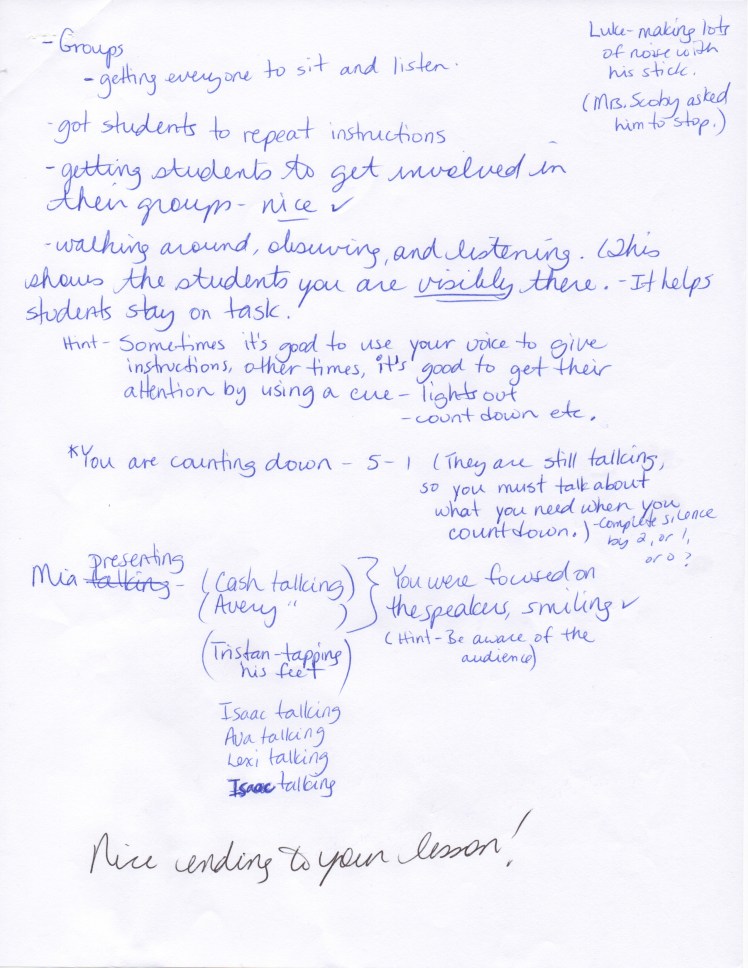 - Groups
- getting everyone to sit and listen.
Luke - making lots
of noise with
his stick.
(Mrs. Scoby asked
him to stop.)
- got students to repeat instructions
- getting students to get involved in
their groups - nice ✓
- walking around, observing, and listening. (This
shows the students you are visibly there. - It helps
students stay on task.
Hint - Sometimes it's good to use your voice to give
instructions, other times, it's good to get their
attention by using a cue - lights out
- count down etc.
*You are counting down - 5 - 1 (They are still talking,
so you must talk about
what you need when you
count down.) - complete silence
by 2, or 1,
or 0?
presenting
Mia talking - (Cash talking)
(Avery " )
You were focused on
the speakers, smiling ✓
(Hint - Be aware of the
audience)
(Tristan - tapping
his feet)
Isaac talking
Ava talking
Lexi talking
Isaac talking
Nice ending to your lesson!